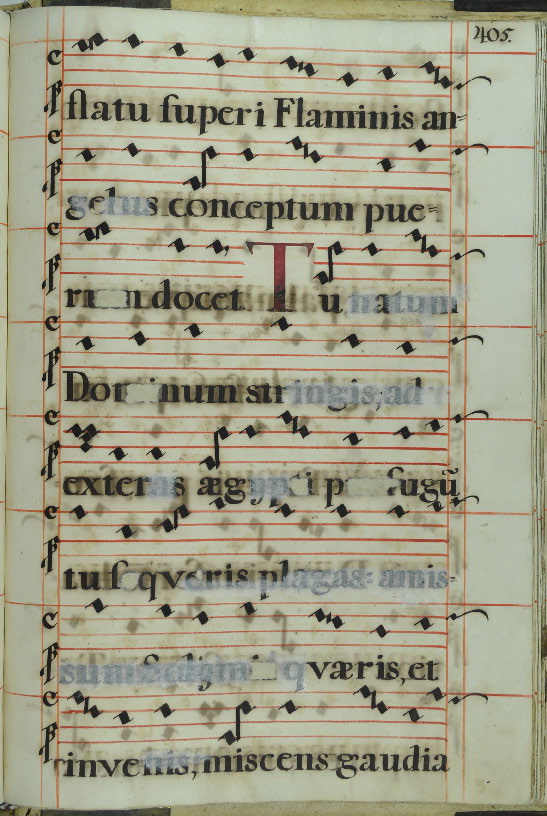 405.
flatu superi Flaminis an-
gelus conceptum pue-
docet. Tu natum
Do inum stringis, ad
exter s ægyp i p fugũ
tu s queris plagas: amis-
sum quæris, et
invenis, miscens gaudia